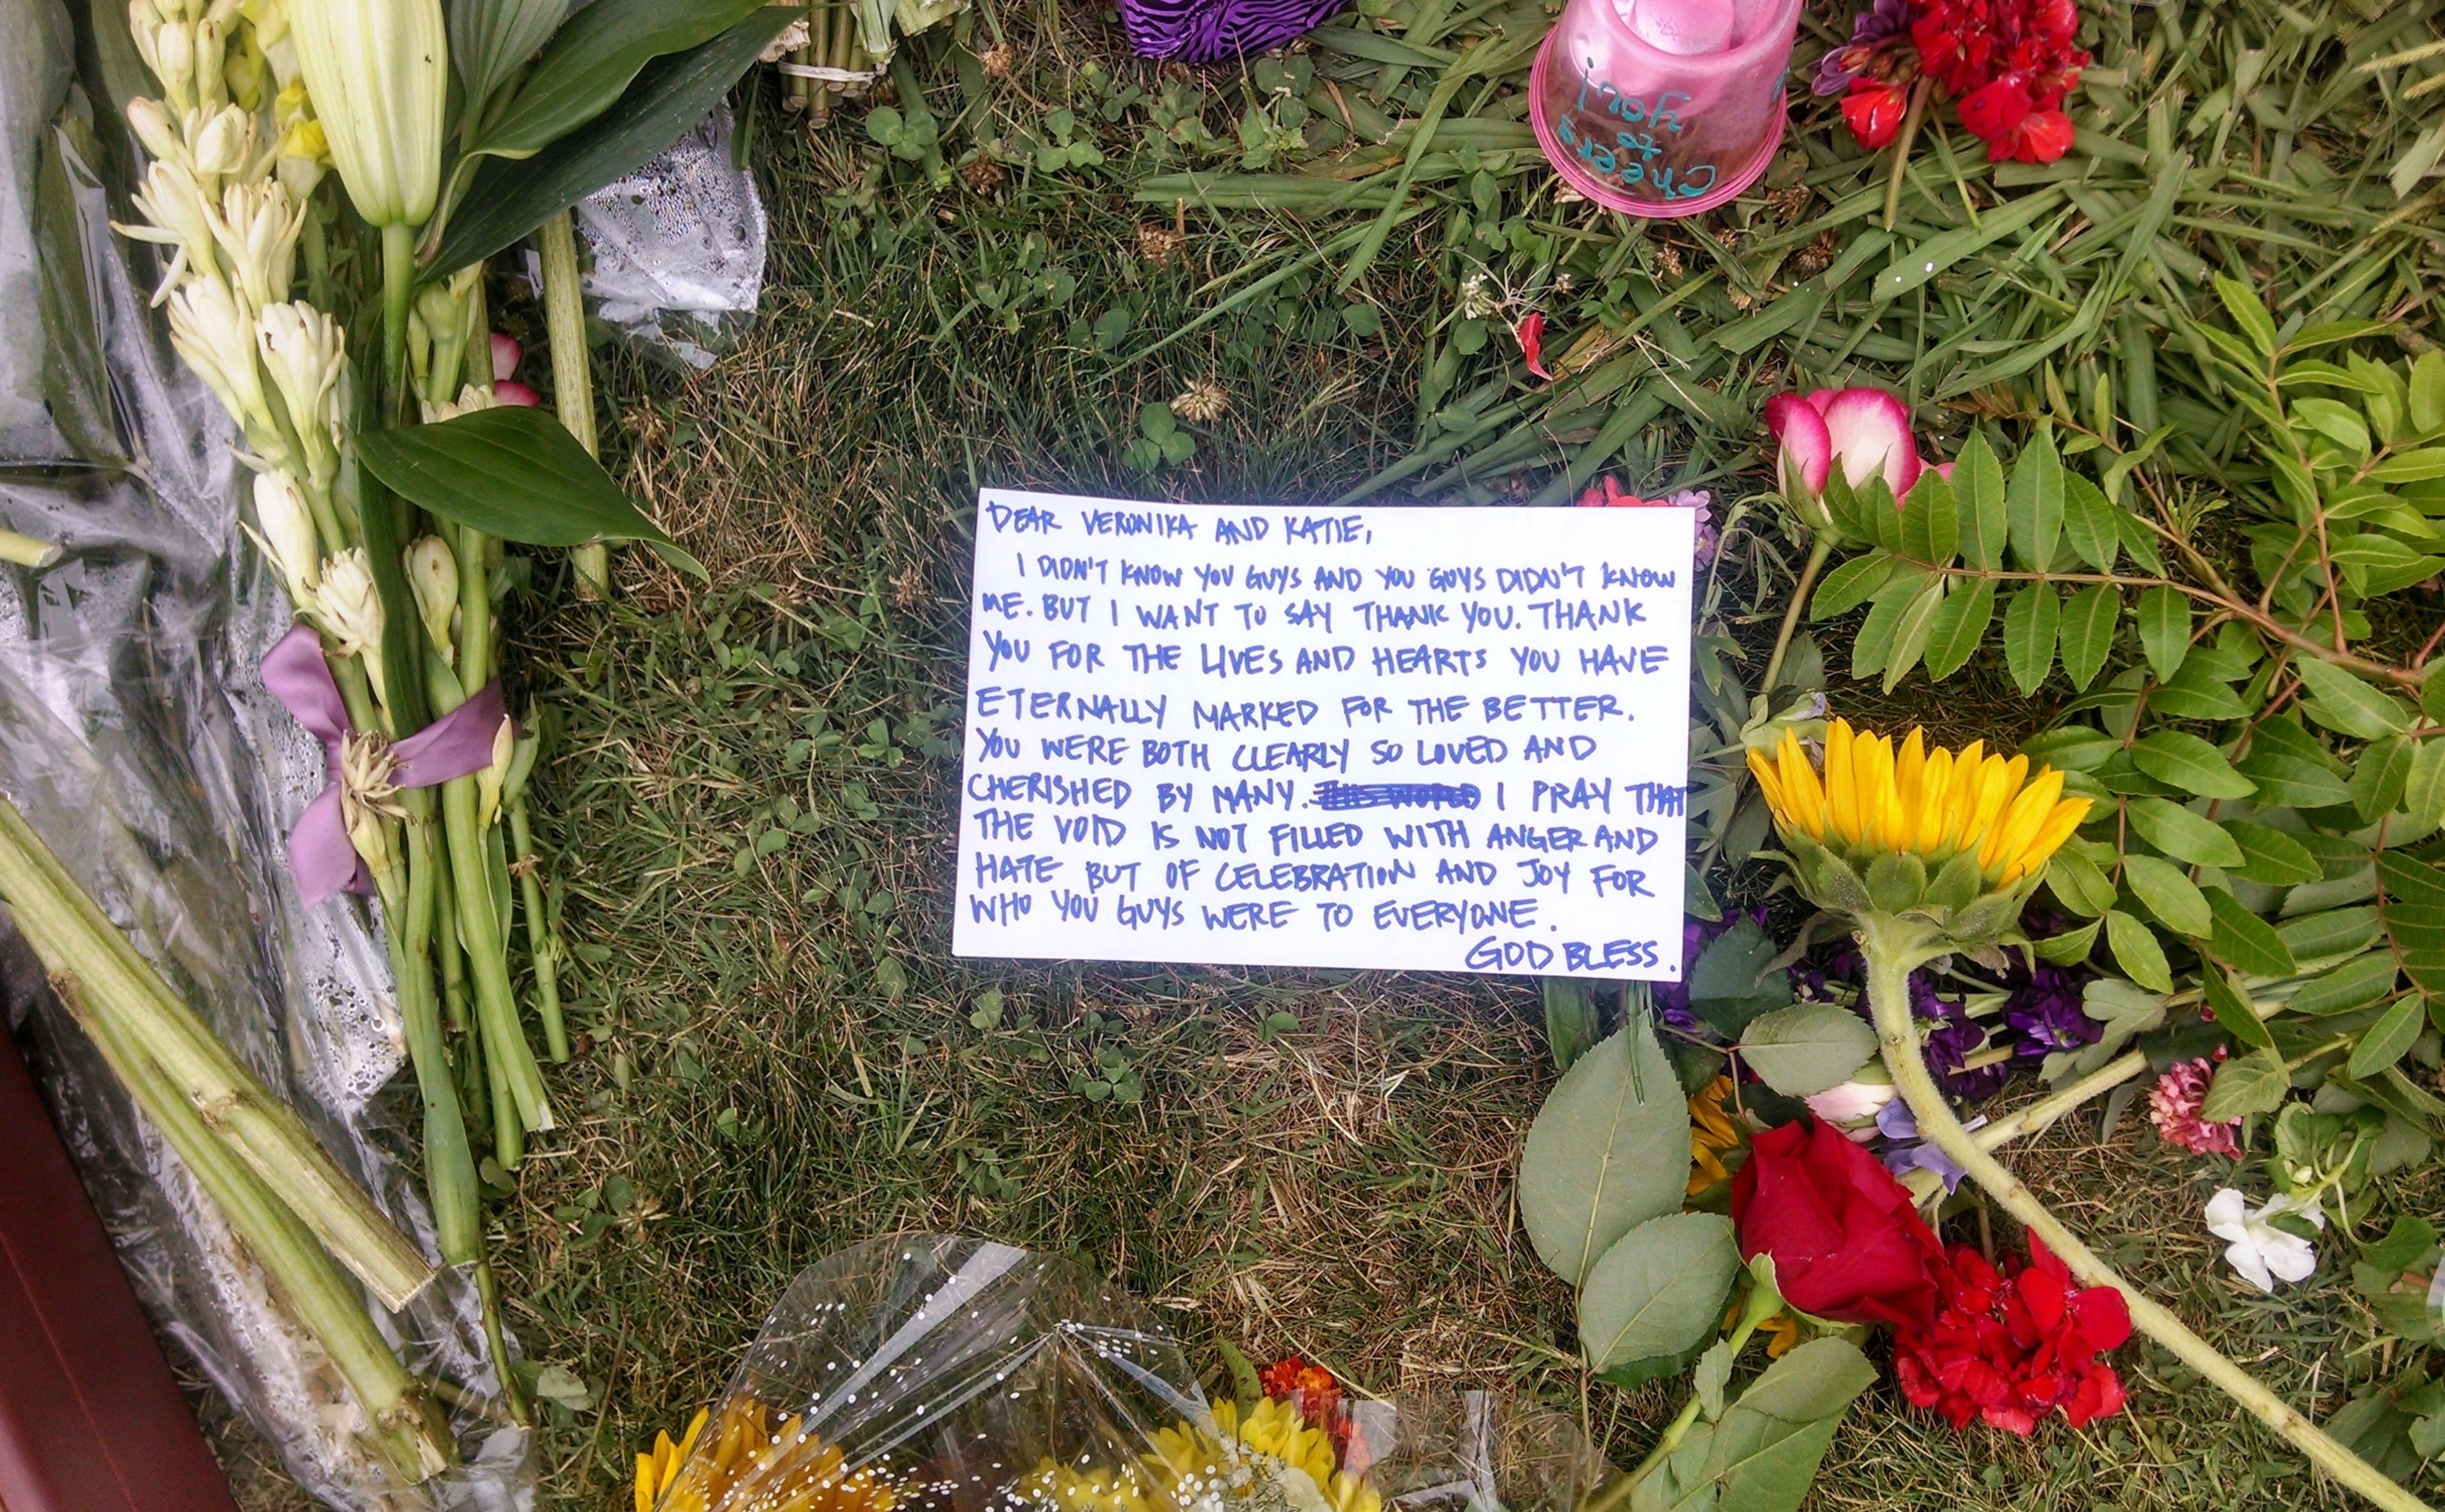 cheers
to
you!
DEAR VERONIKA AND KATIE,
I DIDN'T KNOW YOU GUYS AND YOU GUYS DIDN'T KNOW
ME. BUT I WANT TO SAY THANK YOU. THANK
YOU FOR THE LIVES AND HEARTS YOU HAVE
ETERNALLY MARKED FOR THE BETTER.
YOU WERE BOTH CLEARLY SO LOVED AND
CHERISHED BY MANY. I PRAY THAT
THE VOID IS NOT FILLED WITH ANGER AND
HATE BUT OF CELEBRATION AND JOY FOR
WHO YOU GUYS WERE TO EVERYONE.
GOD BLESS.